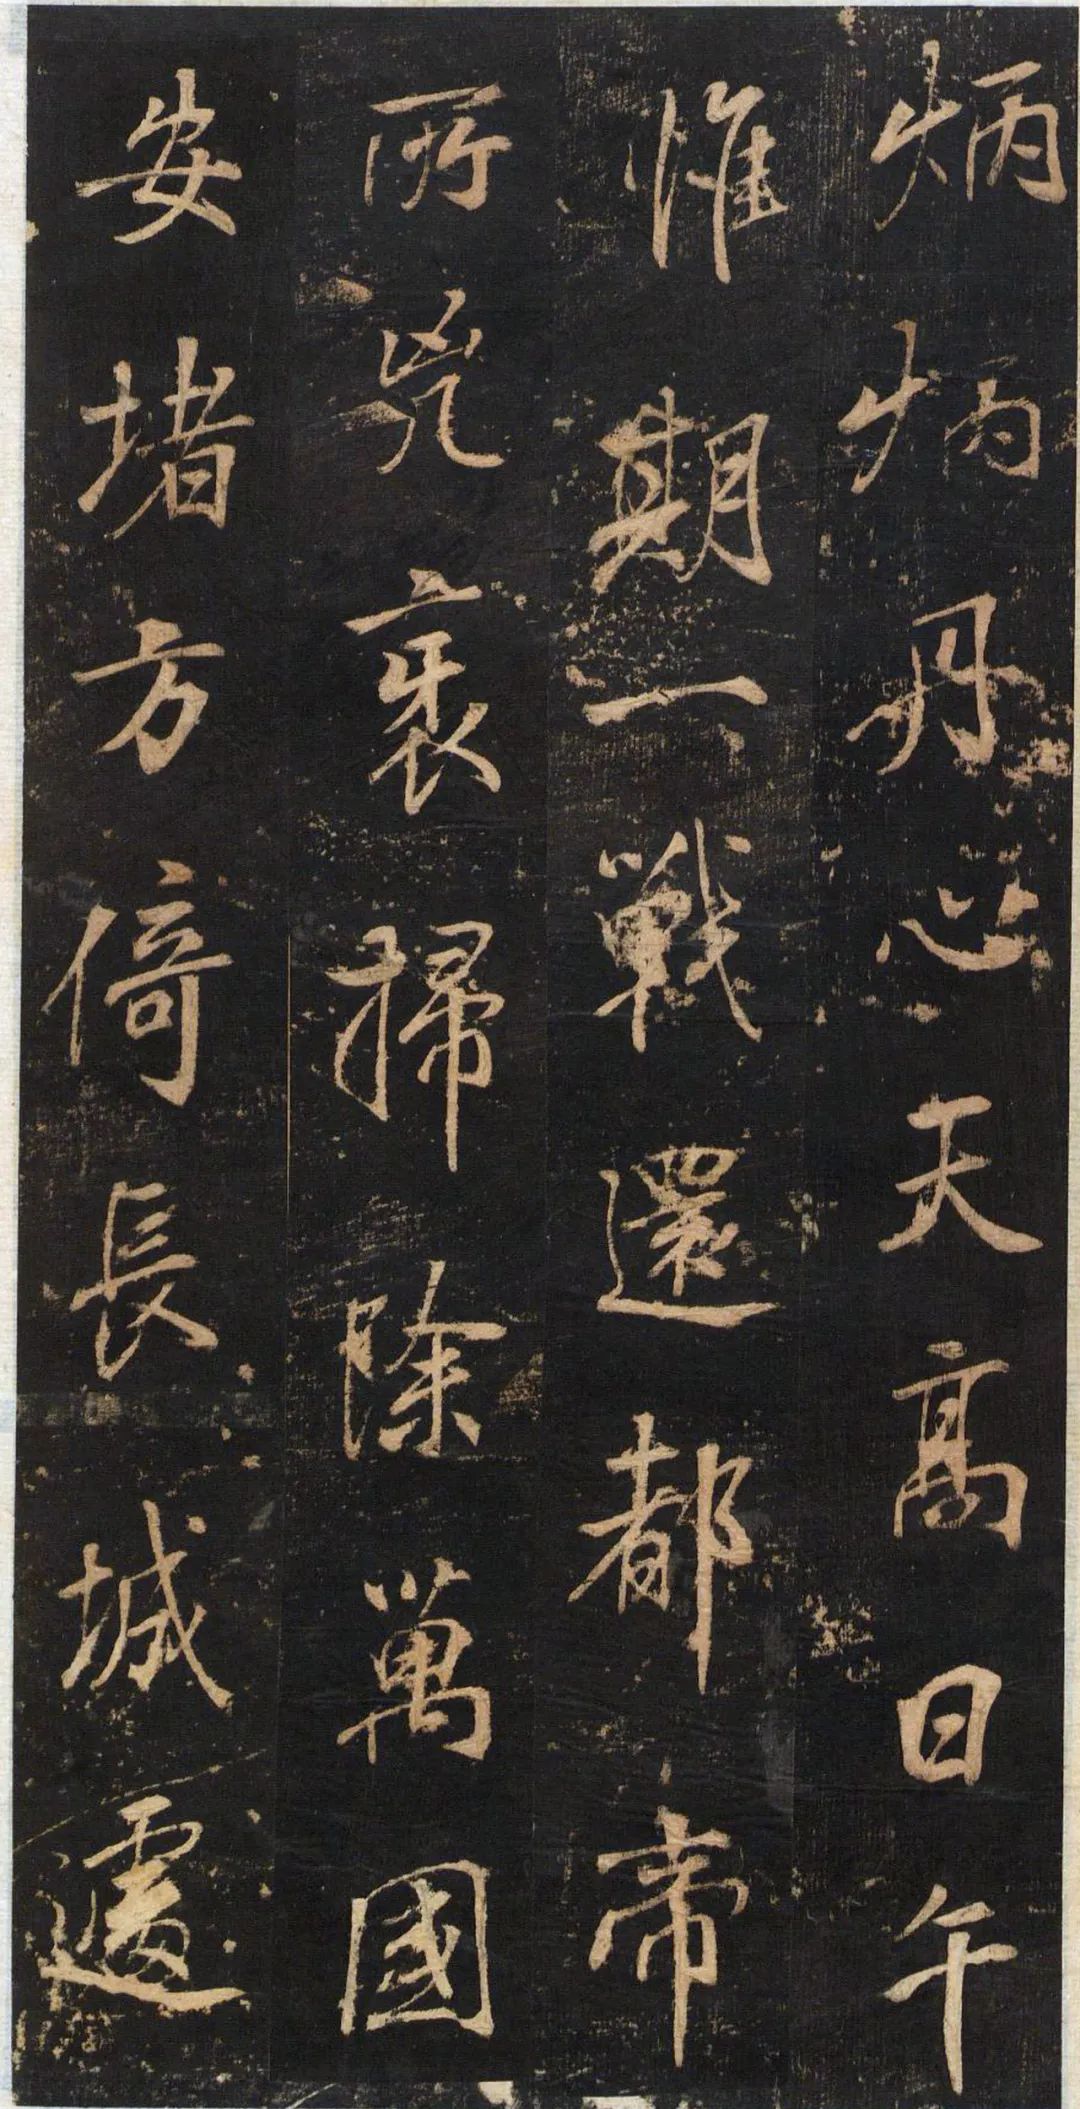 炳炳丹心天高日午
惟期一戰還都帝
所兇衺掃除萬國
安堵方倚長城遽